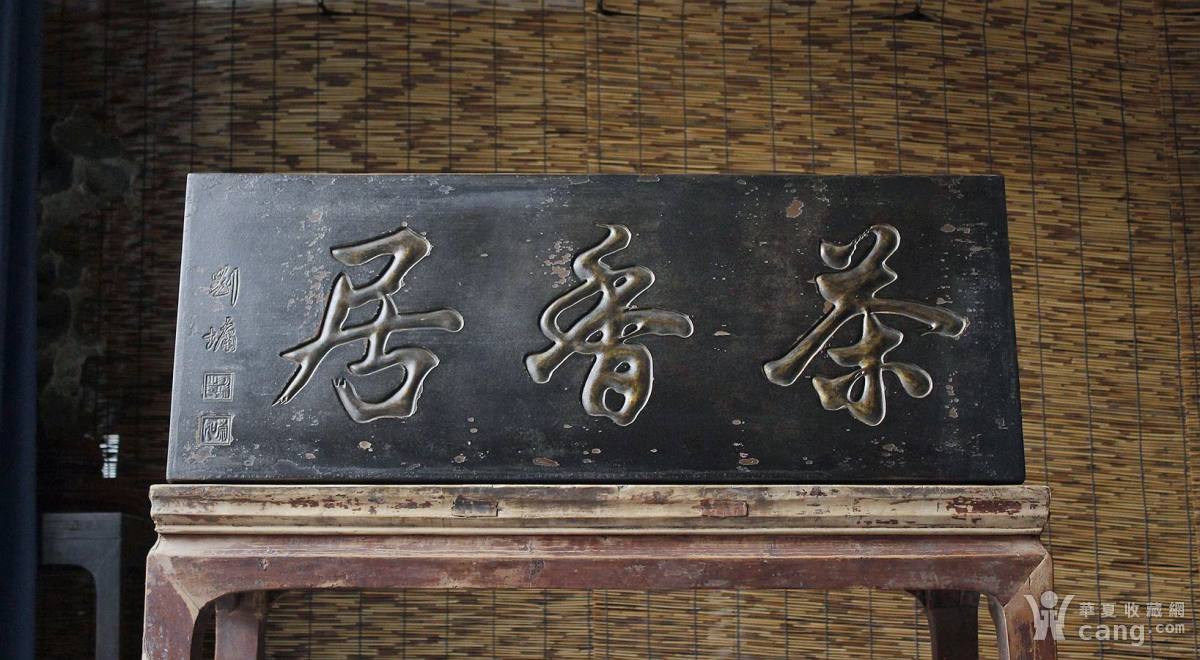 茶香居
劉墉
華夏收藏網
cang.com